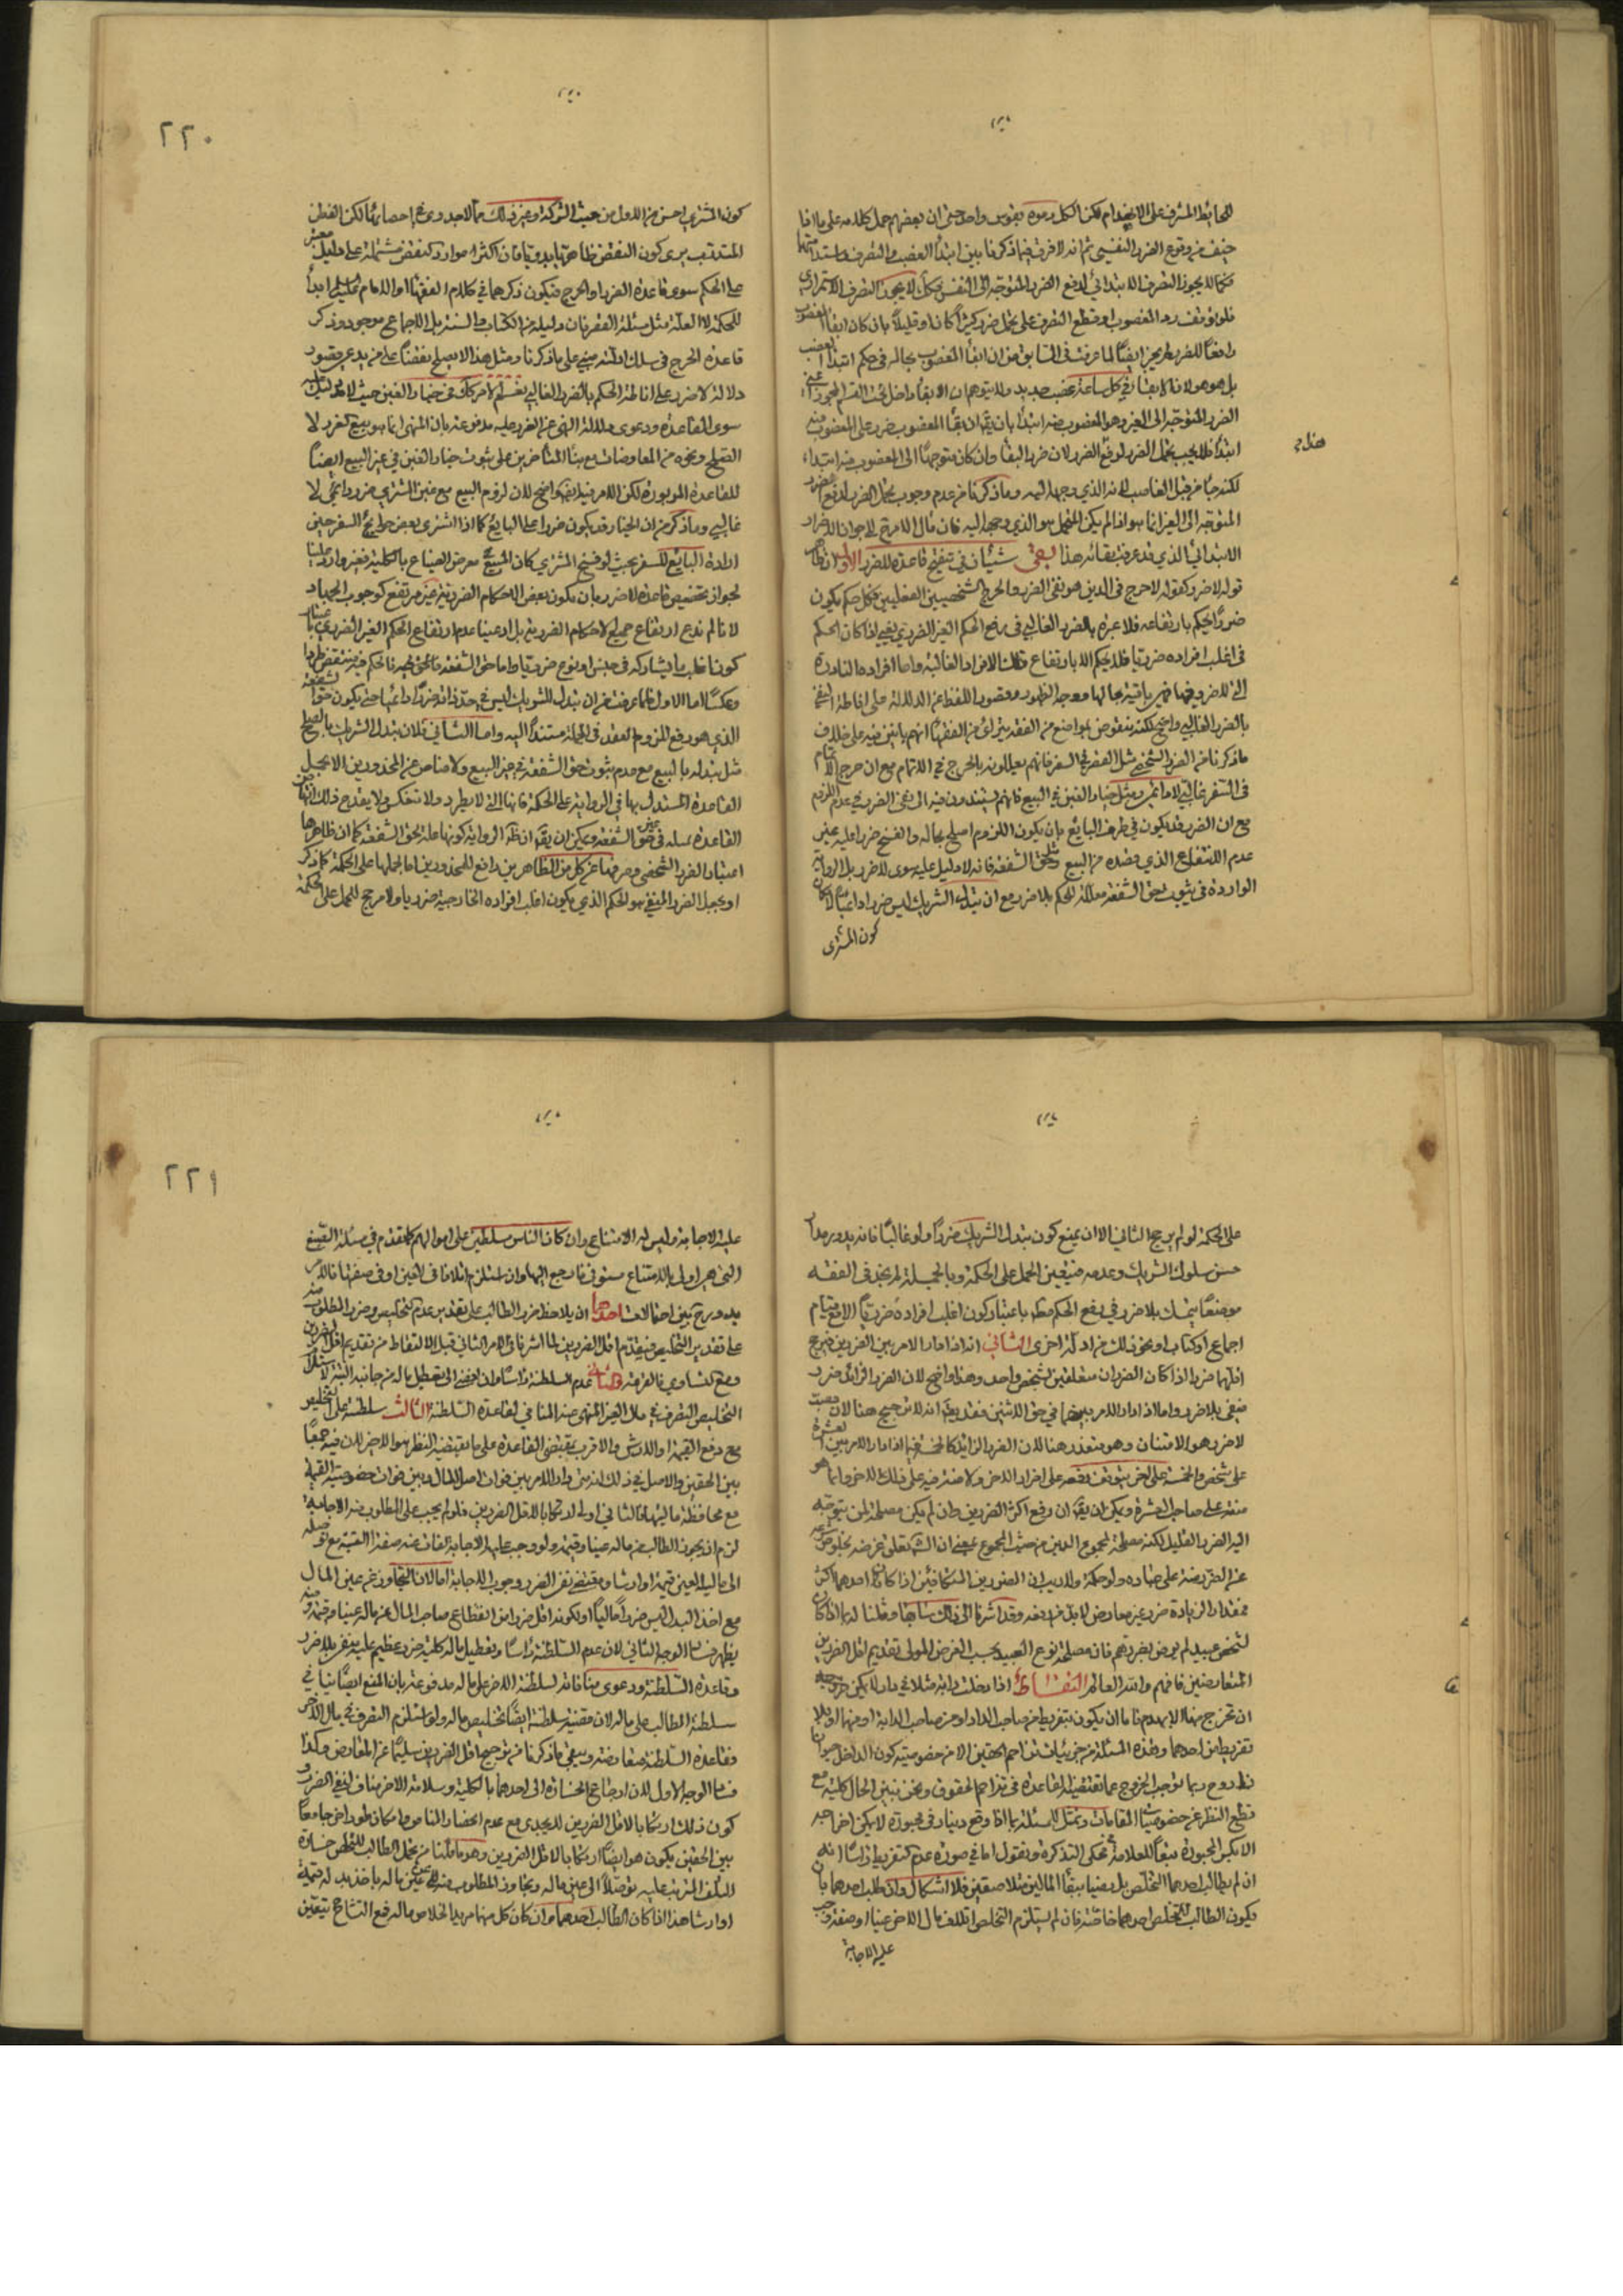 ٢٢٠
للحائط المشرف على الانهدام لكن الكل رموه بقوس واحد حتى ان بعضهم حمل كلامه على ما اذا
خيف من وقوع الضرر النفسي ثم انه لا فرق فيما ذكرنا بين ابتداء الغصب والتصرف واستدامتهما
فكما لا يجوز التصرف الابتدائي لدفع الضرر المتوجه الى النفس فكك لا يجوز التصرف الاستمراري
فلو توقف رد المغصوب او قطع التصرف على تحمل ضرر كثيرا كان او قليلا بان كان ابقاء المغصوب
دافعا للضرر لم يجز ايضا لما عرفت في السابق من ان ابقاء المغصوب بحاله في حكم ابتداء الغصب
بل هو هو لان الابقاء في كل ساعة غصب جديد ولا يتوهم ان الابقاء داخل تحت
الضرر المتوجه الى الغير وهو المغصوب منه ابتداء بان يقال ان بقاء المغصوب ضرر على المغصوب منه
ابتداء فلا يجب تحمل الضرر لدفع الضرر لان ضرر البقاء وان كان متوجها الى المغصوب منه ابتداء
لكنه جاء من قبل الغاصب لانه الذي وجهه اليه وما ذكرنا من عدم وجوب تحمل الضرر لدفع الضرر
المتوجه الى الغير انما هو اذا لم يكن المتحمل هو الذي وجهه اليه فان مآل الامر ح الى جواز الاضرار
الابتدائي الذي قد عرفت بقائه هذا بقي شيئان في تنقيح قاعدة الضرر الاول ان ظاهر
قوله لا ضرر كقوله لا حرج في الدين هو نفي الضرر والحرج الشخصيين الفعليين فكل حكم يكون
ضررا يحكم بارتفاعه فلا عبرة بالضرر الغالبي في رفع الحكم الغير الضرري يعني اذا كان الحكم
في اغلب افراده ضرريا فلا يحكم الا بارتفاع تلك الافراد الغالبة واما افراده النادرة
التي لا ضرر فيها فهي باقية بحالها ووجه الظهور وقصور اللفظ عن الدلالة على اناطة
بالضرر الغالبي واضح لكنه منقوض بمواضع من الفقه يترائ من الفقهاء انهم بانين فيه على خلاف
ما ذكرنا من الضرر الشخصي مثل القصر في السفر فانهم يعللونه بالحرج في الاتمام مع ان حرج الاتمام
في السفر غالبي لا دائمي ومثل خيار الغبن في البيع فانهم يستندون فيه الى نفي الضرر في عدم اللزوم
مع ان الضرر قد يكون في طرف البايع بان يكون اللزوم اصلح بحاله والفسخ ضررا عليه من
عدم الانتفاع الذي قصده من البيع ومثل حق الشفعة فانه لا دليل عليه سوى لا ضرر بل الرواية
الواردة في ثبوت حق الشفعة معللة للحكم بلا ضرر مع ان تبدل الشريك ليس ضررا دائما
كون المشتري
كون المشتري احسن من الاول من حيث الشركة او غير ذلك مما لا جدوى في احصائها لكن الفطن
المتدبر يرى كون النقض ظاهريا بدويا فان اكثر الموارد كنقض مشتملة على دليل معتبر
على الحكم سوى قاعدة الضرر او الحرج فيكون ذكرهما في كلام الفقهاء او الامام ع تعليلا ابداء
للحكمة لا العلة مثل مسئلة القصر فان دليله من الكتاب والسنة بل الاجماع موجود وذكر
قاعدة الحرج في سلك ادلته مبني على ما ذكرنا ومثل هذا لا يصلح نقضا على من يدعي قصور
دلالة لا ضرر على اناطة الحكم بالضرر الغالبي نعم الامر كك في خيار الغبن حيث لا دليل
سوى القاعدة ودعوى دلالة النهي عن الغرر عليه مدفوعة بان المنهي انما هو بيع الغرر لا
الصلح ونحوه من المعاوضات مع بناء المتأخرين على ثبوت خيار الغبن في غير البيع ايضا
للقاعدة المزبورة لكن الامر فيه ايضا واضح لان لزوم البيع مع غبن المشتري ضرر دائمي لا
غالبي وما ذكر من ان الخيار قد يكون ضررا على البايع كما اذا اشترى بعض حوايج السفر حين
ارادة البايع للسفر بحيث لو فسخ المشتري كان المبيع في معرض الضياع بالكلية فغير وارد علينا
لجواز تخصيص قاعدة لا ضرر بان يكون بعض الاحكام الضررية غير مرتفع كوجوب الجهاد
لانا لم ندع ارتفاع جميع الاحكام الضررية بل ادعينا عدم ارتفاع الحكم الغير الضرري باعتبار
كون اغلب ما يشاركه في جنس او نوع ضرريا واما حق الشفعة فالحق فيه ان الحكم فيه ينتقض طردا
وعكسا اما الاول فلما عرفت من ان تبدل الشريك ليس في حد ذاته ضررا دائميا حتى يكون حق الشفعة
الذي هو رفع للزوم العقد في الجملة مستندا اليه واما الثاني فلان تبدل الشريك بالصلح
مثل تبدله بالبيع مع عدم ثبوت حق الشفعة في غير البيع ولا مناص عن المحذورين الا بجعل
القاعدة المستدل بها في الرواية على الحكمة فانها التي لا يطرد ولا تنعكس ولا يقدح ذلك
القاعدة عمله في غير حق الشفعة ويمكن ان يقال ان ظاهر الرواية كونها علة لحق الشفعة كما ان ظاهرها
اعتبار الضرر الشخصي وصرفها عن كل من الظاهرين دافع للمحذورين اما بحملها على الحكمة كما ذكر
او بجعل الضرر المنفي هو الحكم الذي يكون اغلب افراده الخارجية ضرريا ولا مرجح للحمل على الحكمة
٢٢١
على الحكمة لو لم يرجح الثاني الا ان يمنع كون تبدل الشريك ضررا ولو غالبا فانه يدور مدار
حسن سلوك الشريك وعدمه فيتعين الحمل على الحكمة وبالجملة لم نجد في الفقه
موضعا يتمسك بلا ضرر في رفع الحكم مطلقا باعتبار كون اغلب افراده ضرريا الا مع قيام
اجماع او كتاب او نحو ذلك من ادلة اخرى الثاني انه اذا دار الامر بين الضررين فيرجح
اقلهما ضررا اذا كان الضرران متعلقين بشخص واحد وهذا واضح لان الضرر الزائد ضرر
منفي بلا ضرر واما اذا دار الامر بينهما في حق الاثنين فقد يقال انه لا ترجيح هنا لان
لا ضرر هو الامتنان وهو متعذر هنا لان الضرر الزايد كالخمسة فيما اذا دار الامر بين العشرة
على شخص والخمسة على اخر يتوقف دفعه على اضرار الاخر ولا منة فيه على ذلك الاخر وانما هو
منة على صاحب العشرة ويمكن ان يقال ان دفع اكثر الضررين وان لم يكن مصلحة لمن يتوجه
اليه الضرر القليل لكنه مصلحة لمجموع الاثنين من حيث المجموع بمعنى ان الشارع تعلق غرضه
عن الضرر منة على عباده ولو حكمة ولا ريب ان الضررين المتكافئين اذا كان احدهما اكثر
فمقدار الزيادة ضرر غير معارض لا بد من دفعه وقد اشرنا الى ذلك سابقا وقلنا انه اذا كان
لشخص عبيد لم يرض بضررهم فان مصلحة نوع العبيد بحسب الغرض المولى تقديم اقل الضررين
المتعارضين فافهم والله العالم التقاط اذا دخلت دابة مثلا في دار لا يمكن خروجه
ان تخرج منها الا بهدم فاما ان يكون بتفريط من صاحب الدار او من صاحب الدابة او منهما او بلا
تفريط من احدهما وهذه المسئلة من جزئيات تزاحم الحقين الا ان خصوصية كون الداخل حيوانا
ذا روح ربما توجب الخروج عما تقتضيه القاعدة في تزاحم الحقوق ونحن نبين الحال كلية مع
قطع النظر عن خصوصيات المقامات ونمثل للمسئلة بما اذا وقع دينار في محبرة لا يمكن اخراجه
الا بكسر المحبرة تبعا للعلامة في محكي التذكرة ونقول اما في صورة عدم التفريط راسا انه
ان لم يطالب احدهما التخلص بل رضيا ببقاء المالين متلاصقين فلا اشكال وان طلب احدهما بان
يكون الطالب للتخلص احدهما خاصة فان لم يستلزم التخلص اتلاف مال الاخر عينا او صفة وجب
عليه الاجابة
عليه الاجابة وليس له الامتناع وان كان الناس مسلطين على اموالهم كما تقدم في مسئلة الصبغ
التي هي اولى بالامتناع مستوفى فارجع اليها وان استلزم اتلافا في العين او في صفتها فالامر
يدور ح بين احتمالات احدها ان يلاحظ ضرر الطالب على تقدير عدم التخليص وضرر المطلوب منه
على تقدير التخليص فيقدم اقل الضررين لما اشرنا في الامر الثاني قبل الالتقاط من تقديم اقل الضررين
ومع التساوي فالقرعة والثاني عدم السلطنة راسا وان افضى الى تعطيل ماله من جانبه لاستلزام
التخليص التصرف في مال الغير المنهي عنه المنافي لقاعدة السلطنة الثالث سلطنته على التخليص
مع دفع القيمة او الارش والاقرب بمقتضى القاعدة على ما يقتضيه النظر هو الاخير لان فيه جمعا
بين الحقين والاصل في ذلك انه متى دار الامر بين فوات اصل المال وبين فوات خصوصية
مع محافظة ماليتها فالثاني اولى لا ارتكابا لاقل الضررين فلو لم يجب على المطلوب منه الاجابة
لزم ان يحرم الطالب من ماله عينا وقيمة ولو وجب عليه الاجابة لفات عنه صفة العينية مع توصله
الى مالية العين قيمة او ارشا ومقتضى نفي الضرر وجوب الاجابة اما لان التجاوز عن عين المال
مع اخذ البدل ليس ضررا ماليا او لكونه اقل ضررا من انقطاع صاحب المال عن ماله عينا وقيمة ومنه
يظهر فساد الوجه الثاني لان عدم السلطنة راسا وتعطيل ماله كلية ضرر عظيم عليه ينفى بلا ضرر
وقاعدة السلطنة ودعوى منافاته لسلطنة الاخر على ماله مدفوعة بان المنع ايضا ينافي
سلطنة الطالب على ماله لان مقتضى سلطنته ايضا تخليص ماله ولو استلزم التصرف في مال الاخر
فقاعدة السلطنة متعارضة ويبقى ما ذكرنا من ترجيح اقل الضررين سليما عن المعارض وكذا
فساد الوجه الاول لان ارجاع الخسارة الى احدهما بالكلية وسلامة الاخر مناف لنفي الضرر و
كون ذلك ارتكابا لاقل الضررين لا يجدي مع عدم انحصار المناص وامكان طور اخر جامعا
بين الحقين يكون هو ايضا ارتكابا لاقل الضررين وهو ما قلنا من تحمل الطالب للتخلص خسارة
التلف المترتب عليه توصلا الى عين ماله وتجاوز المطلوب منه عن عين ماله باخذ بدله قيمة
او ارشا هذا اذا كان الطالب احدهما وان كان كل منهما مريدا لخلاص ماله رفع التشاح تبيين